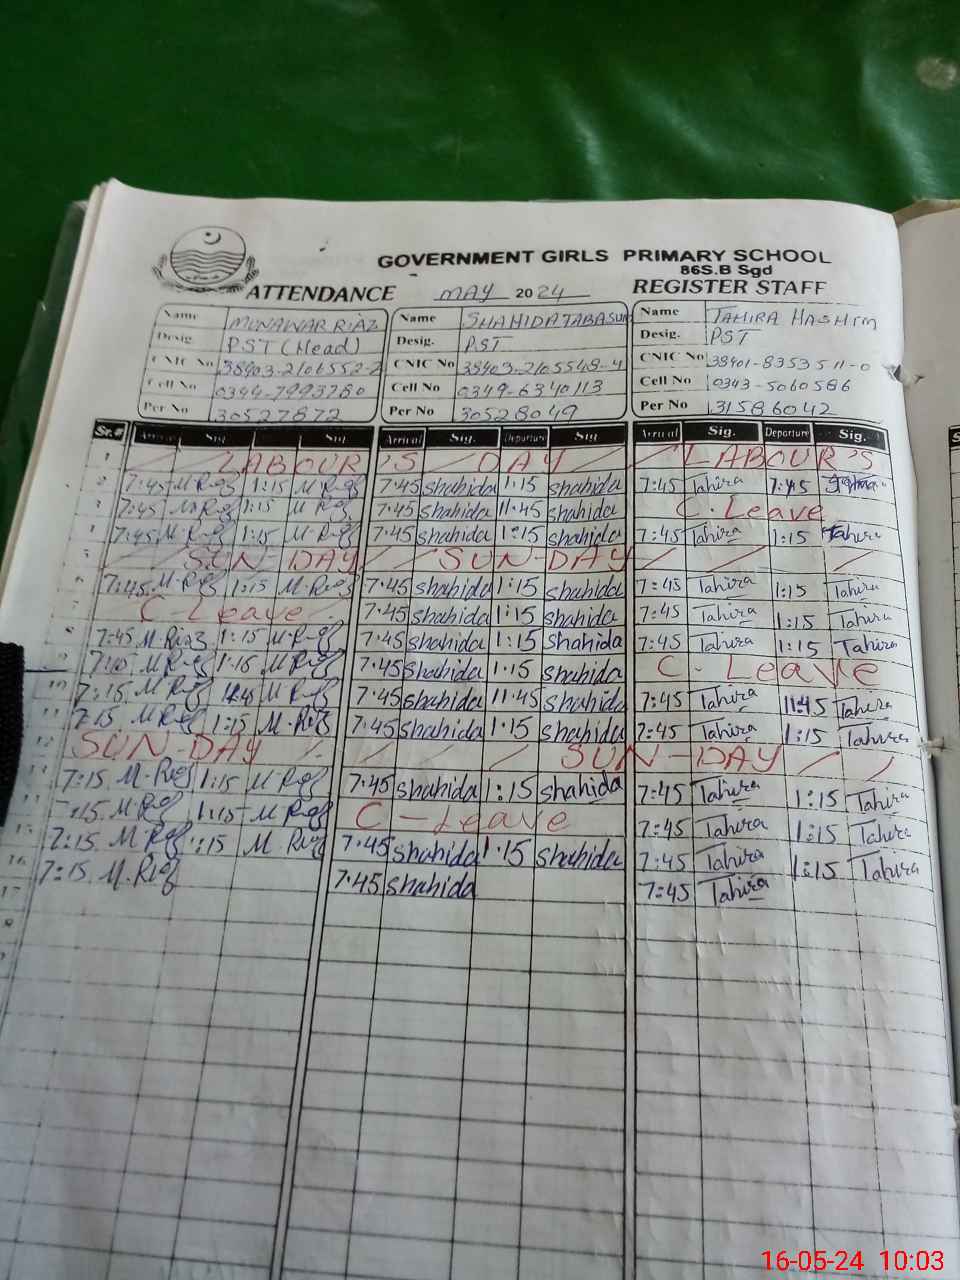 GOVERNMENT GIRLS PRIMARY SCHOOL
86S.B Sgd
ATTENDANCE MAY 2024 REGISTER STAFF
Name MUNAWAR RIAZ Name SHAHIDA TABASUM Name TAHIRA HASHIM
Desig. PST (Head) Desig. PST Desig. PST
CNIC No 38403-2106552-2 CNIC No 38403-2105548-4 CNIC No 38401-8353511-0
Cell No 0344-7993780 Cell No 0349-6340113 Cell No 0343-5060586
Per No 30527872 Per No 30528049 Per No 31586042
Sr.# Arrival Sig. Sig. Arrival Sig. Departure Sig. Arrival Sig. Departure Sig.
1 LABOUR'S DAY LABOUR'S
2 7:45 M.Riaz 1:15 M.Riaz 7.45 shahida 1.15 shahida 7:45 Tahira
3 7:45 M.Riaz 1:15 M.Riaz 7.45 shahida 11.45 shahida C.Leave
4 7:45 M.Riaz 1:15 M.Riaz 7.45 shahida 1:15 shahida 7:45 Tahira 1:15 Tahira
5 SUN-DAY SUN-DAY
6 7:45 M.Riaz 1:15 M.Riaz 7.45 shahida 1:15 shahida 7:45 Tahira 1:15 Tahira
C-Leave 7.45 shahida 1:15 shahida 7:45 Tahira 1:15 Tahira
8 7:45 M.Riaz 1:15 M.Riaz 7.45 shahida 1:15 shahida 7:45 Tahira 1:15 Tahira
9 7:10 M.Riaz 1:15 M.Riaz 7.45 shahida 1.15 shahida C. Leave
10 7:15 M.Riaz M.Riaz 7.45 shahida 11.45 shahida 7:45 Tahira 11:45 Tahira
11 7:15 M.Riaz 1:15 M.Riaz 7.45 shahida 1.15 shahida 7:45 Tahira 1:15 Tahira
12 SUN-DAY SUN-DAY
13 7:15 M.Riaz 1:15 M.Riaz 7.45 shahida 1:15 shahida 7:45 Tahira 1:15 Tahira
7:15 M.Riaz 1:15 M.Riaz C-Leave 7:45 Tahira 1:15 Tahira
15 7:15 M.Riaz 1:15 M.Riaz 7.45 shahida 1.15 shahida 7:45 Tahira 1:15 Tahira
16 7:15 M.Riaz 7.45 shahida 7:45 Tahira
17
16-05-24 10:03